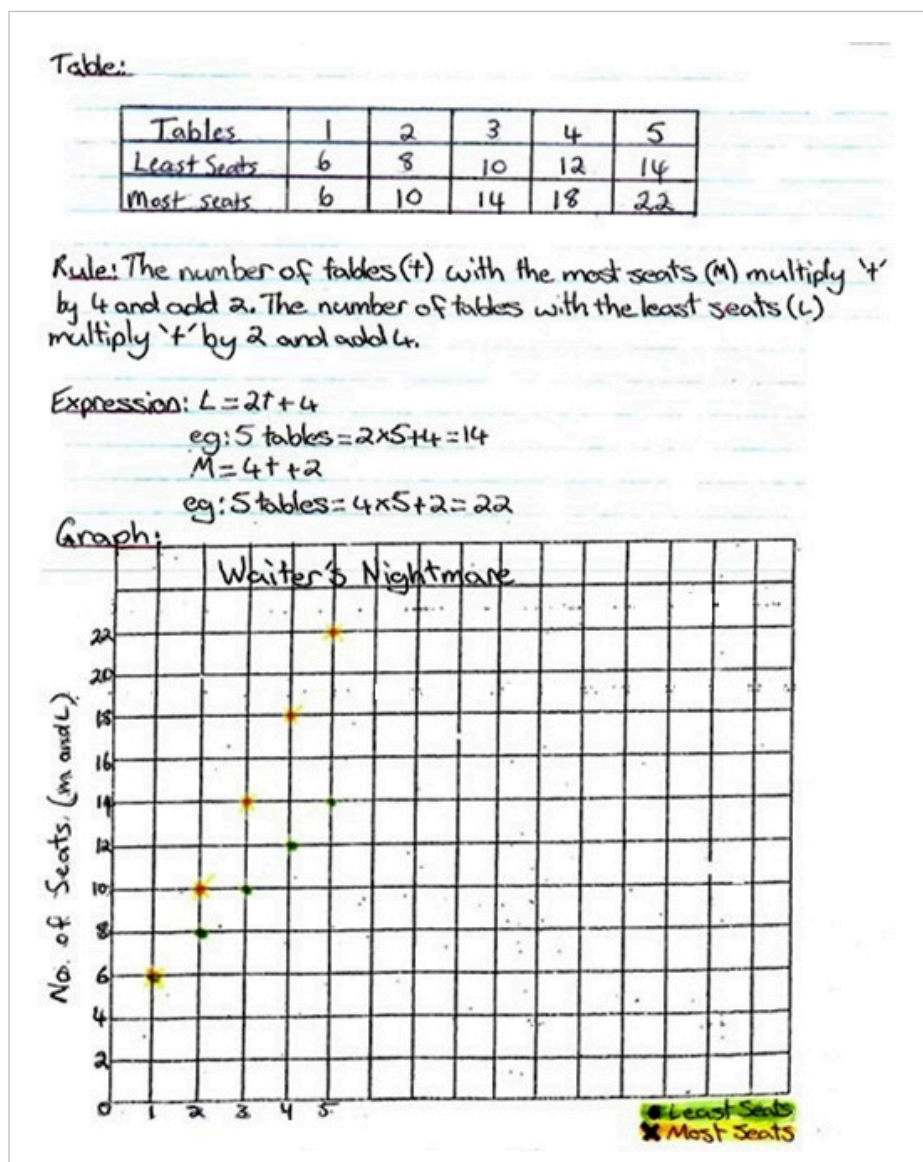 Table:
Tables 1 2 3 4 5
Least Seats 6 8 10 12 14
Most seats 6 10 14 18 22
Rule: The number of tables (t) with the most seats (M) multiply 't'
by 4 and add 2. The number of tables with the least seats (L)
multiply 't' by 2 and add 4.
Expression: L = 2t + 4
eg: 5 tables = 2×5+4 = 14
M = 4t + 2
eg: 5 tables = 4×5+2 = 22
Graph:
Waiter's Nightmare
No. of Seats. (m and L)
22
20
18
16
14
12
10
8
6
4
2
0 1 2 3 4 5
Least Seats
Most Seats